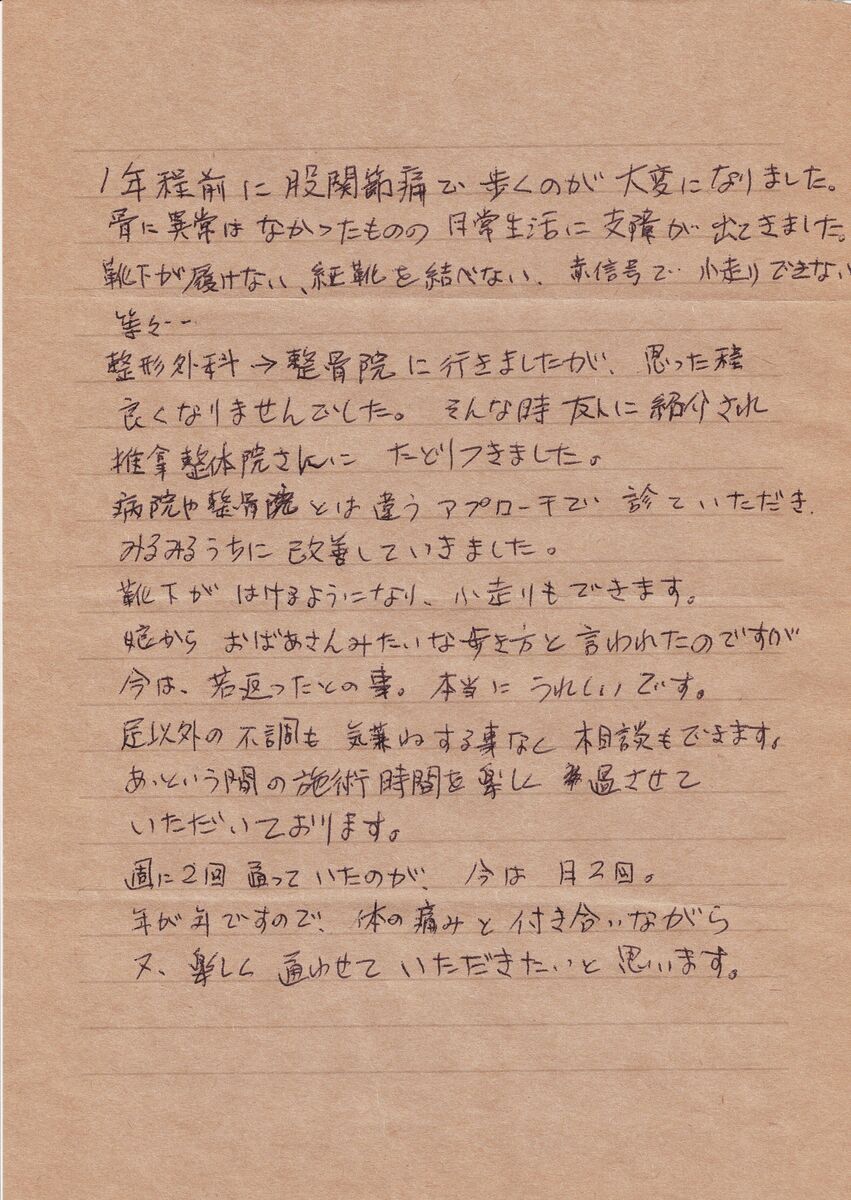 1年程前に股関節痛で歩くのが大変になりました。
骨に異常はなかったものの日常生活に支障が出てきました。
靴下が履けない、紐靴を結べない、赤信号で小走りできない
等々--
整形外科→整骨院に行きましたが、思った程
良くなりませんでした。そんな時友人に紹介され
推拿整体院さんにたどりつきました。
病院や整骨院とは違うアプローチで診ていただき、
みるみるうちに改善していきました。
靴下がはけるようになり、小走りもできます。
娘からおばあさんみたいな歩き方と言われたのですが
今は、若返ったとの事。本当にうれしいです。
足以外の不調も気兼ねする事なく相談もできます。
あっという間の施術時間を楽しく過させて
いただいております。
週に2回通っていたのが、今は月2回。
年が年ですので、体の痛みと付き合いながら
又、楽しく通わせていただきたいと思います。